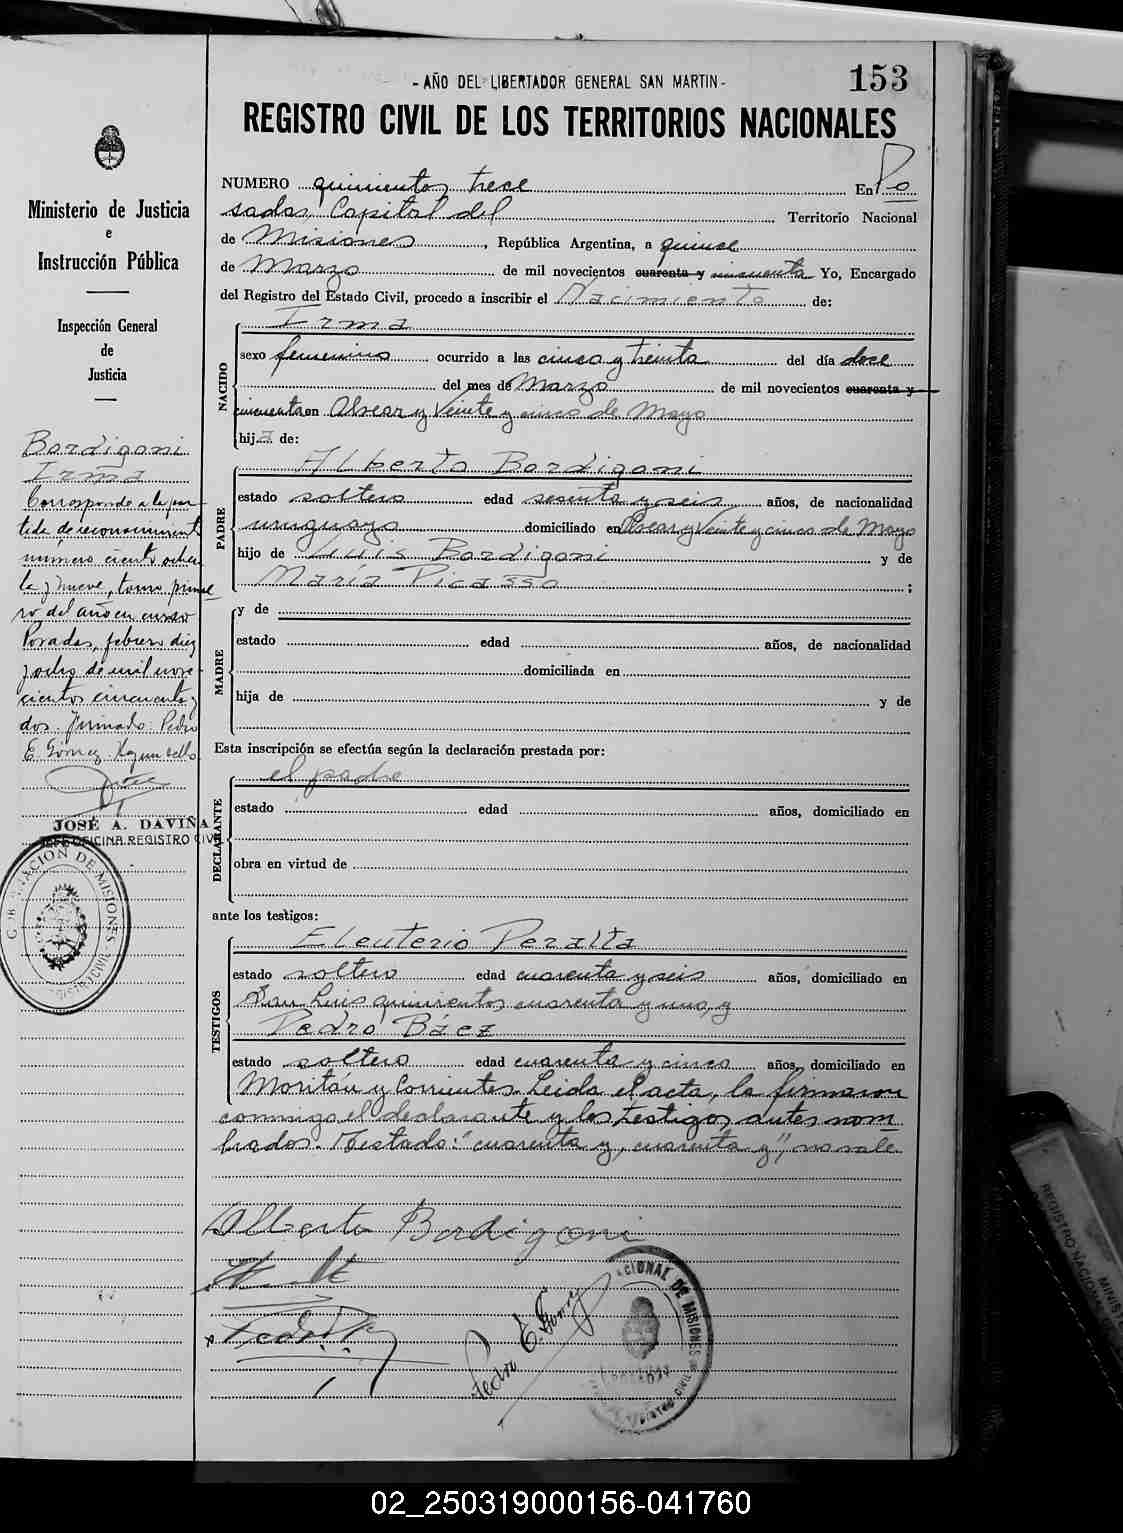 - AÑO DEL LIBERTADOR GENERAL SAN MARTIN -
153
REGISTRO CIVIL DE LOS TERRITORIOS NACIONALES
Ministerio de Justicia
e
Instrucción Pública
Inspección General
de
Justicia
Bordigoni
Irma
Corresponde a la par-
tida de reconocimiento
número ciento ochen
ta y nueve, tomo prime
ro del año en curso
Posadas, febrero diez
y ocho de mil nove-
cientos cincuenta y
dos. Firmado: Pedro
E. Gómez. Hay un sello
JOSÉ A. DAVIÑA
JEFE OFICINA REGISTRO CIVIL
GOBERNACION DE MISIONES
REGISTRO CIVIL
NUMERO quinientos trece En Po
sadas, Capital del Territorio Nacional
de Misiones, República Argentina, a quince
de Marzo de mil novecientos cuarenta y cincuenta Yo, Encargado
del Registro del Estado Civil, procedo a inscribir el Nacimiento de:
NACIDO
Irma
sexo femenino ocurrido a las cinco y treinta del día doce
del mes de Marzo de mil novecientos cuarenta y
cincuenta en Alvear y Veinte y cinco de Mayo
hija de:
PADRE
Alberto Bordigoni
estado soltero edad sesenta y seis años, de nacionalidad
uruguayo domiciliado en Alvear y Veinte y cinco de Mayo
hijo de Luis Bordigoni y de
María Picasso ;
MADRE
y de
estado edad años, de nacionalidad
domiciliada en
hija de y de
Esta inscripción se efectúa según la declaración prestada por:
DECLARANTE
el padre
estado edad años, domiciliado en
obra en virtud de
ante los testigos:
TESTIGOS
Eleuterio Peralta
estado soltero edad cuarenta y seis años, domiciliado en
San Luis quinientos cuarenta y uno, y
Pedro Báez
estado soltero edad cuarenta y cinco años, domiciliado en
Moritán y Corrientes. Leida el acta, la firmaron
conmigo el declarante y los testigos antes nom
brados. Testado: "cuarenta y, cuarenta y", no vale.
Alberto Bordigoni
Pedro E. Gómez
NACIONAL DE MISIONES
REGISTRO CIVIL
02_250319000156-041760